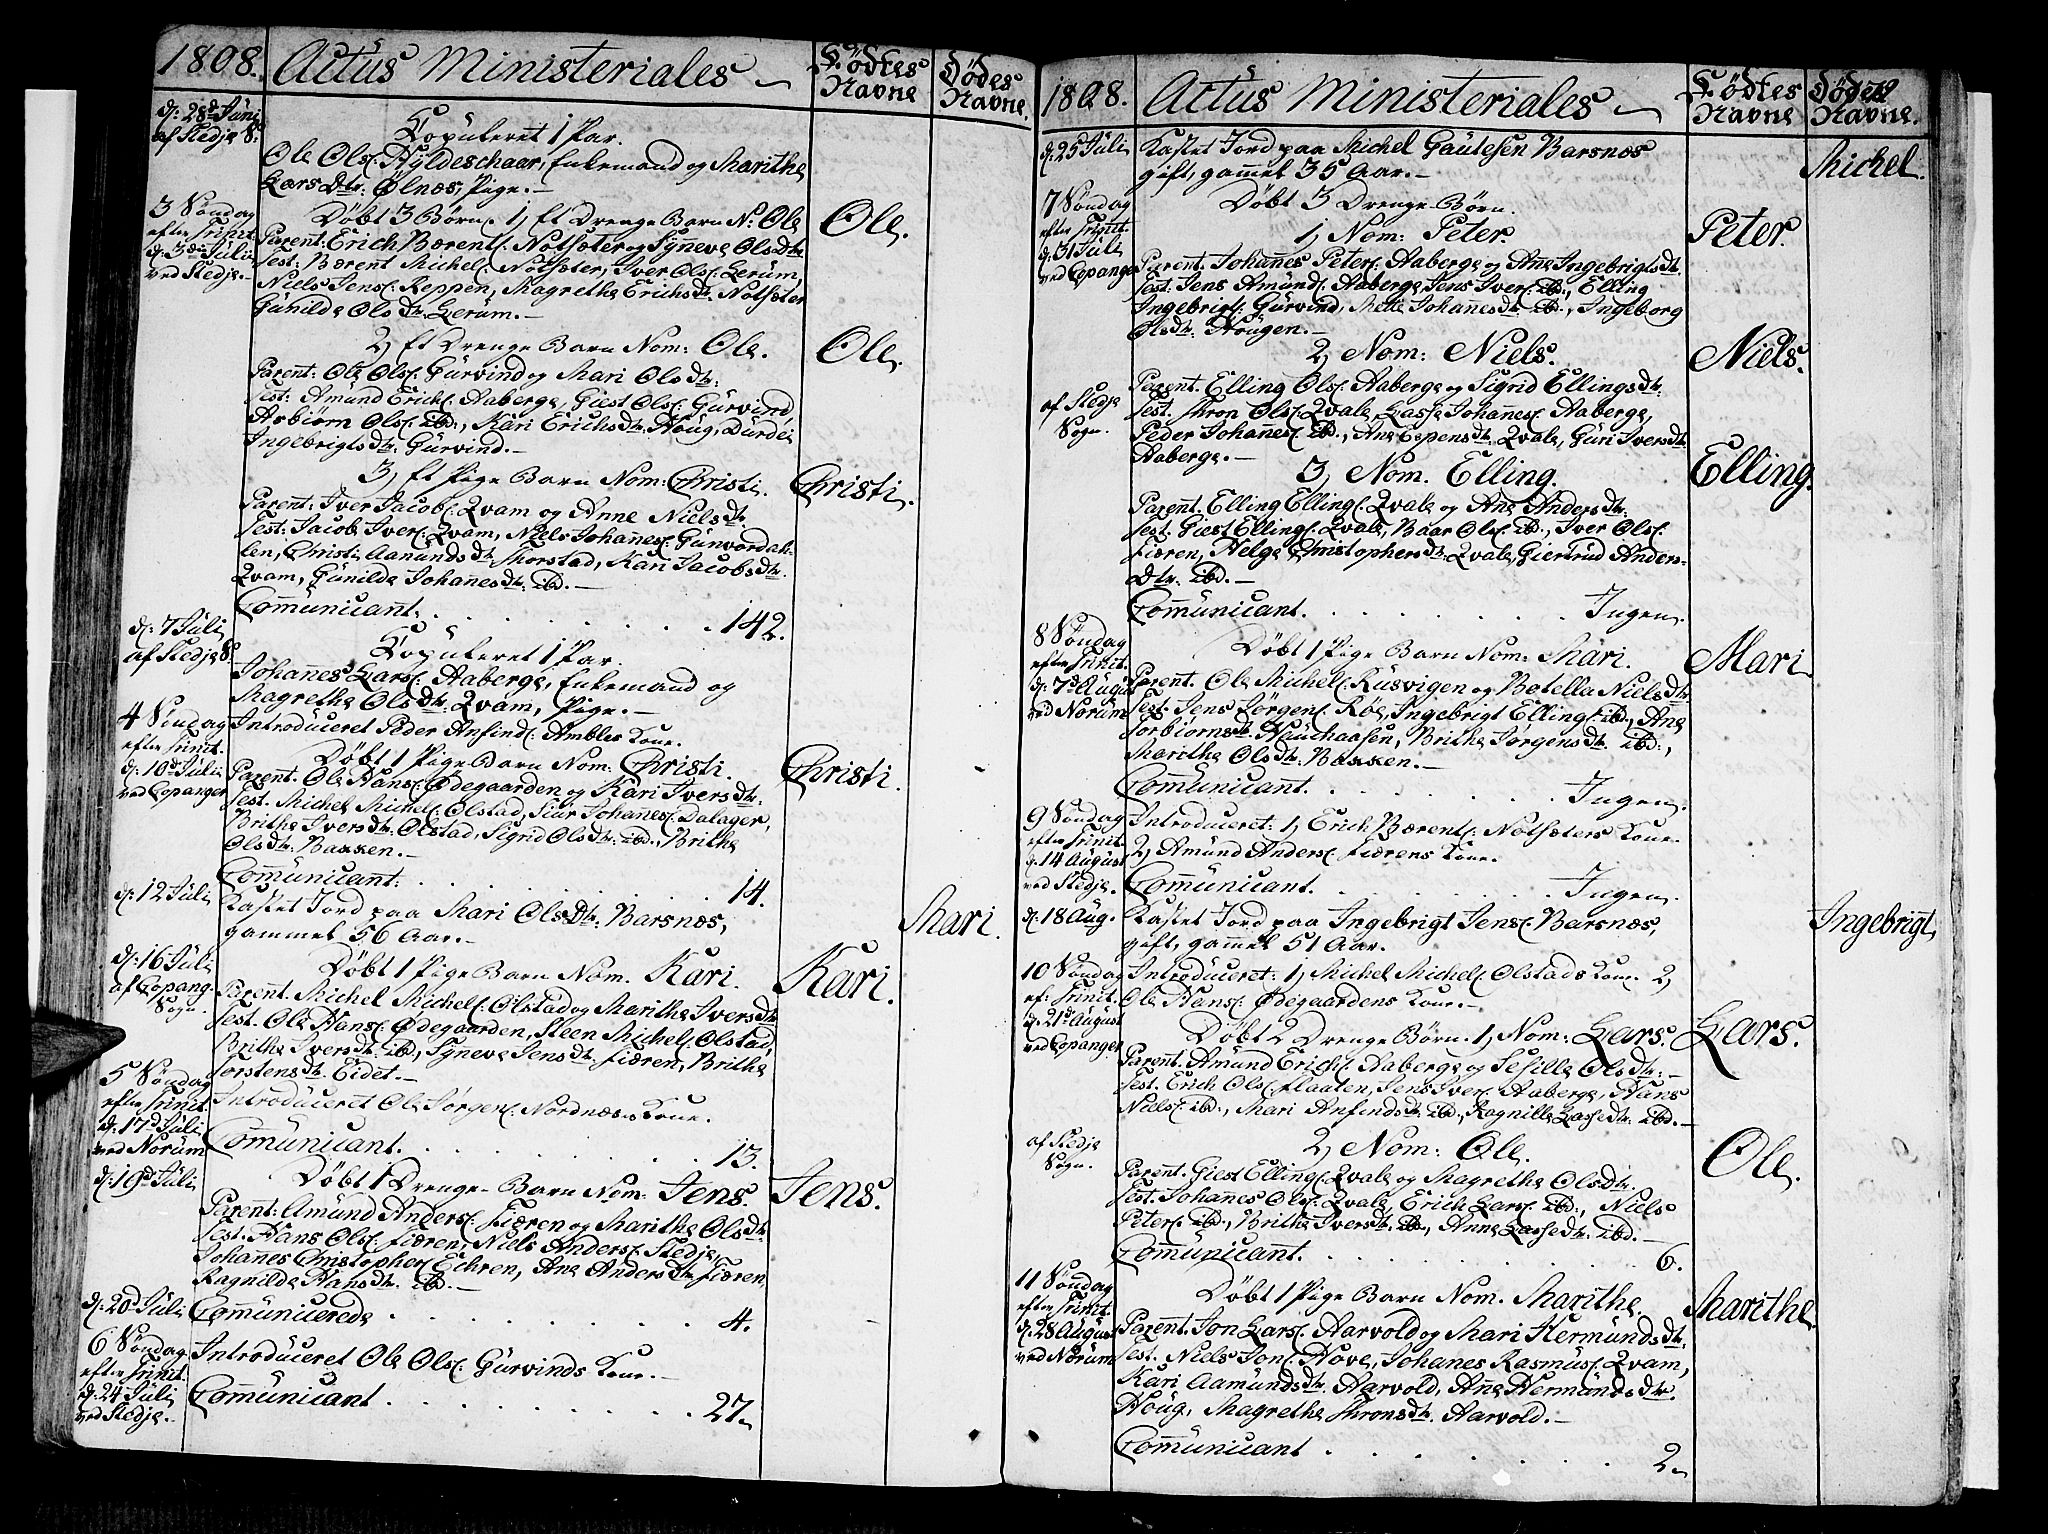 1808. Actus Ministeriales Fødtes Navne Dødes Navne.
d: 28d Juni af Stedje S:
Copuleret 1 Par.
Ole Ols: Hyldeschaar, Enkemand og Marithe
Lars Dtr. Ølnæs, Pige.
3 Søndag efter Trinit. d: 3die Julii ved Stedje.
Døbt 3 Børn. 1, Et Drenge Barn N: Ole Ole.
Parent: Erich Bærents: Notsæter og Synneve Olsdtr
Test: Bærent Michels: Notsæter, Iver Ols: Lerüm,
Niels Jens: Reppen, Magrethe Erichsdtr. Notsæter
Günilde Olsdtr. Lerüm.
2, Et Drenge Barn Nom: Ole. Ole.
Parent: Ole Ols: Gürvind og Mari Olsdtr:
Test: Amünd Erichs: Aaberge, Giest Ols: Gürvind
Asbiørn Ols: ibd:, Kari Erichsdtr. Houg, Durdei
Ingebrigtsdtr: Gürvind.
3, Et Pige Barn Nom: Christi. Christi.
Parent: Iver Jacobs: Qvam og Anne Nielsdtr.
Test: Jacob Ivers: Qvam, Niels Johañes: Günvordal-
len, Christi Aamundsdtr. Thorstad, Kari Jacobsdtr.
Qvam, Günilde Johanesdtr: ibd.
Com̄ünicant: 142.
d: 7 Juli af Stedje S:
Copuleret 1 Par.
Johañes Lars: Aaberge, Enkemand og
Magrethe Olsdtr: Qvam, Pige.
4 Søndag efter Trinit. d: 10d Julii ved Copanger
Introduceret Peder Anfinds: Ambles Kone.
Døbt 1 Pige Barn Nom: Christi. Christi.
Parent. Ole Hans: Ødegaarden og Kari Iversdtr.
Test. Michel Michels: Olstad, Siur Johanes: Dalager,
Brithe Iversdtr: Olstad, Sigrid Olsdtr: ibd: Brithe
Olsdtr: Bakken.
Com̄ünicant: 14.
d: 12 Juli Kastet Jord paa Mari OlsDtr: Barsnæs, Mari.
gammel 56 Aar.
d: 16 Juli af Copang. Sogn.
Døbt 1 Pige Barn Nom. Kari. Kari.
Parent. Michel Michels: Olstad og Marithe Iversdtr
Test. Ole Hans: Ødegaarden, Steen Michels: Olstad,
Brithe Iversdtr: ibd, Synneve Jensdtr. Fiæren, Brithe
Torstensdtr. Eidet.
5 Søndag efter Trinit. d: 17d Juli ved Norüm
Introduceret Ole Jørgens: Nordnæs Kone.
Com̄ünicant. 13.
d: 19d Juli Døbt 1 Drenge-Barn Nom: Jens. Jens.
Parent: Amünd Anders: Fiæren og Marithe Olsdtr.
Test. Hans Ols: Fiæren, Niels Anders: Stedje,
Johañes Christophers: Echren, Ane Andersdtr. Fiæren,
Ragnilde Hansdtr. ibd.
d: 20d Juli Com̄ünicerede 4.
6 Søndag efter Trinit. d: 24 Juli ved Stedje.
Introduceret Ole Ols: Gürvinds Kone.
Com̄ünicant 27
1808. Actus Ministeriales Fødtes Navne Dødes Navne.
d: 25 Juli Kastet Jord paa Michel Gautesen Barsnæs Michel.
gift, gammel 35 Aar.
7 Søndag efter Trinit. d: 31 Juli ved Copanger
Døbt 3 Drenge-Børn.
1, Nom: Peter. Peter.
Parent. Johañes Peters: Aaberge og Ane Ingebrigtsdtr.
Test. Jens Amünds: Aaberge, Jens Ivers: ibd:, Elling
Ingebrigts: Gürvind, Mette Johanesdtr: ibd:, Ingeborg
Olsdtr: Hougen.
2, Nom: Niels. Niels.
af Stedje Sogn.
Parent. Elling Ols: Aaberge og Sigrid Ellingsdtr.
Test. Thron Ols: Qvale, Lasse Johañes: Aaberge,
Peder Johañes: ibd:, Ane Espensdtr: Qvale, Guri Iversdtr
Aaberge.
3, Nom. Elling. Elling.
Parent. Elling Ellings: Qvale og Ane Andersdtr:
Test. Giest Ellings: Qvale, Baar Ols: ibd:, Iver Ols:
Fiæren, Helge Christophersdtr: Qvale, Giertrud Anders-
Dtr: ibd.
Com̄ünicant. Ingen.
8 Søndag efter Trinit. d: 7d August ved Norüm
Døbt 1 Pige Barn Nom: Mari. Mari
Parent. Ole Michels: Küsvigen og Botella Nielsdtr
Test. Jens Jørgens: Røe, Ingebrigt Ellings: ibd:, Ane
Torbiørnsdtr. Hauchaasen, Brithe Jørgensdtr. ibd:,
Marithe Olsdtr: Bakken.
Com̄ünicant. Ingen.
9 Søndag efter Trinit. d: 14 August ved Stedje.
Introduceret: 1, Erich Bærents: Notsæters Kone.
2, Amünd Anders: Fiærens Kone.
Com̄ünicant. Ingen.
d: 18 Aug. Kastet Jord paa Ingebrigt Jens: Barsnæs, Ingebrigt
gift, gammel 51 Aar.
10 Søndag ef: Trinit. d: 21d August ved Copanger
Introduceret: 1, Michel Michels: Olstads Kone 2,
Ole Hans: Ødegaardens Kone.
Døbt 2 Drenge Børn. 1, Nom: Lars. Lars.
Parent. Amünd Erichs: Aaberge og Sesille Olsdtr:
Test. Erich Ols: Flaaten, Jens Ivers: Aaberge, Hans
Niels: ibd:, Mari Anfindsdtr: ibd:, Ragnille Lassedtr: ibd.
af Stedje Sogn.
2, Nom: Ole. Ole.
Parent. Giest Ellings: Qvale og Magrethe Olsdtr.
Test. Johanes Ols: Qvale, Erich Lars: ibd:, Niels
Peters: ibd:, Brithe Iversdtr: ibd:, Anne Lassedtr: ibd.
Com̄ünicant. 6.
11 Søndag efter Trinit. d: 28 August ved Norüm
Døbt 1 Pige Barn Nom. Marithe. Marithe.
Parent. Jon Lars: Aarvold og Mari Hermündsdtr.
Test. Niels Jons: Hove, Johanes Rasmus: Qvam,
Kari Aamündsdtr. Aarvold, Añe Hermündsdtr.
Houg, Magrethe Thronsdtr. Aarvold.
Com̄ünicant 2